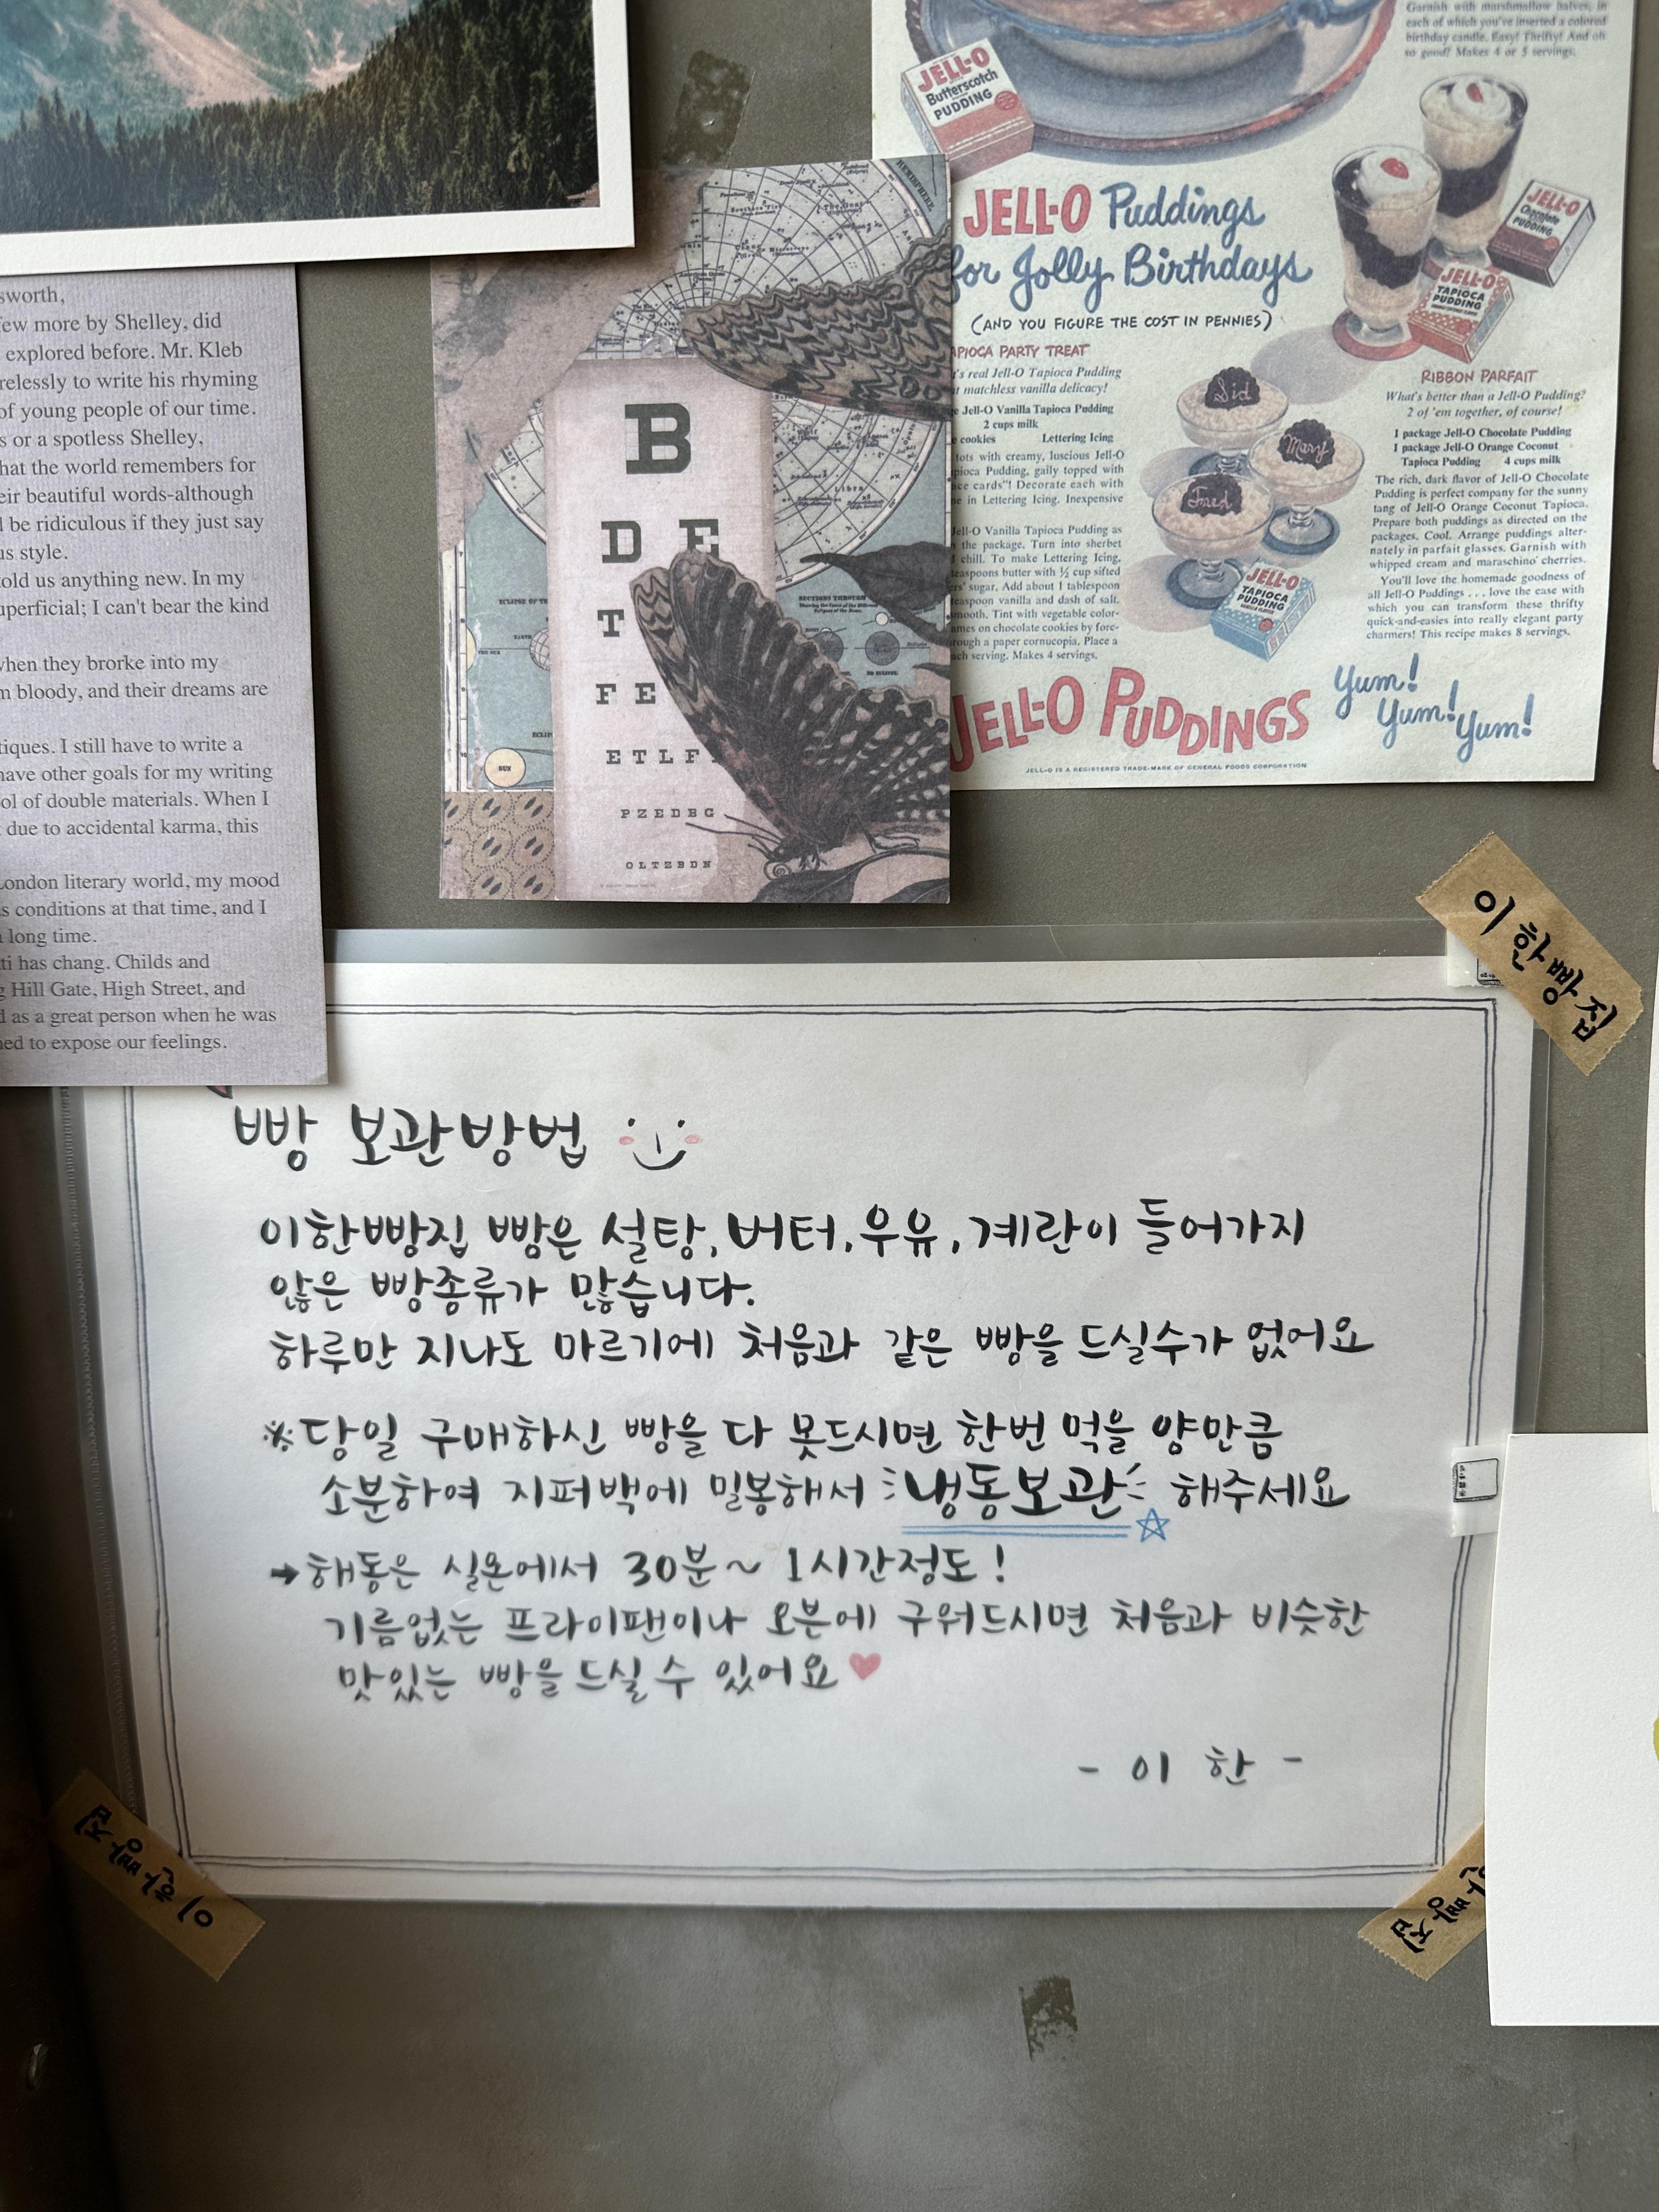 Garnish with marshmallow halves, in
each of which you've inserted a colored
birthday candle. Easy! Thrifty! And oh
so good! Makes 4 or 5 servings.
JELL-O
Butterscotch
PUDDING
JELL-O Puddings
for Jolly Birthdays
(AND YOU FIGURE THE COST IN PENNIES)
JELL-O
Chocolate
PUDDING
JELL-O
TAPIOCA
PUDDING
PARTY TREAT
real Jell-O Tapioca Pudding
matchless vanilla delicacy!
Jell-O Vanilla Tapioca Pudding
2 cups milk
cookies Lettering Icing
tots with creamy, luscious Jell-O
Pudding, gaily topped with
cards"! Decorate each with
in Lettering Icing. Inexpensive
Jell-O Vanilla Tapioca Pudding as
the package. Turn into sherbet
chill. To make Lettering Icing,
teaspoons butter with ½ cup sifted
sugar. Add about 1 tablespoon
teaspoon vanilla and dash of salt.
smooth. Tint with vegetable color-
on chocolate cookies by forc-
through a paper cornucopia. Place a
serving. Makes 4 servings.
Sid
Mary
Fred
JELL-O
TAPIOCA
PUDDING
RIBBON PARFAIT
What's better than a Jell-O Pudding?
2 of 'em together, of course!
1 package Jell-O Chocolate Pudding
1 package Jell-O Orange Coconut
Tapioca Pudding 4 cups milk
The rich, dark flavor of Jell-O Chocolate
Pudding is perfect company for the sunny
tang of Jell-O Orange Coconut Tapioca.
Prepare both puddings as directed on the
packages. Cool. Arrange puddings alter-
nately in parfait glasses. Garnish with
whipped cream and maraschino cherries.
You'll love the homemade goodness of
all Jell-O Puddings . . . love the ease with
which you can transform these thrifty
quick-and-easies into really elegant party
charmers! This recipe makes 8 servings.
JELL-O PUDDINGS
Yum!
Yum!
Yum!
JELL-O IS A REGISTERED TRADE-MARK OF GENERAL FOODS CORPORATION
B
D E
T
F E
E T L F
P Z E D B C
O L T Z B D N
SUN
sworth,
few more by Shelley, did
explored before. Mr. Kleb
relessly to write his rhyming
of young people of our time.
s or a spotless Shelley,
hat the world remembers for
eir beautiful words-although
l be ridiculous if they just say
us style.
told us anything new. In my
uperficial; I can't bear the kind
when they brorke into my
n bloody, and their dreams are
tiques. I still have to write a
have other goals for my writing
ol of double materials. When I
due to accidental karma, this
London literary world, my mood
s conditions at that time, and I
long time.
ti has chang. Childs and
g Hill Gate, High Street, and
d as a great person when he was
ned to expose our feelings.
이한빵집
빵 보관방법
이한빵집 빵은 설탕, 버터, 우유, 계란이 들어가지
않은 빵종류가 많습니다.
하루만 지나도 마르기에 처음과 같은 빵을 드실수가 없어요
※당일 구매하신 빵을 다 못드시면 한번 먹을 양만큼
소분하여 지퍼백에 밀봉해서 냉동보관 해주세요
→해동은 실온에서 30분~1시간정도!
기름없는 프라이팬이나 오븐에 구워드시면 처음과 비슷한
맛있는 빵을 드실 수 있어요♥
- 이 한 -
이한빵집
빵집